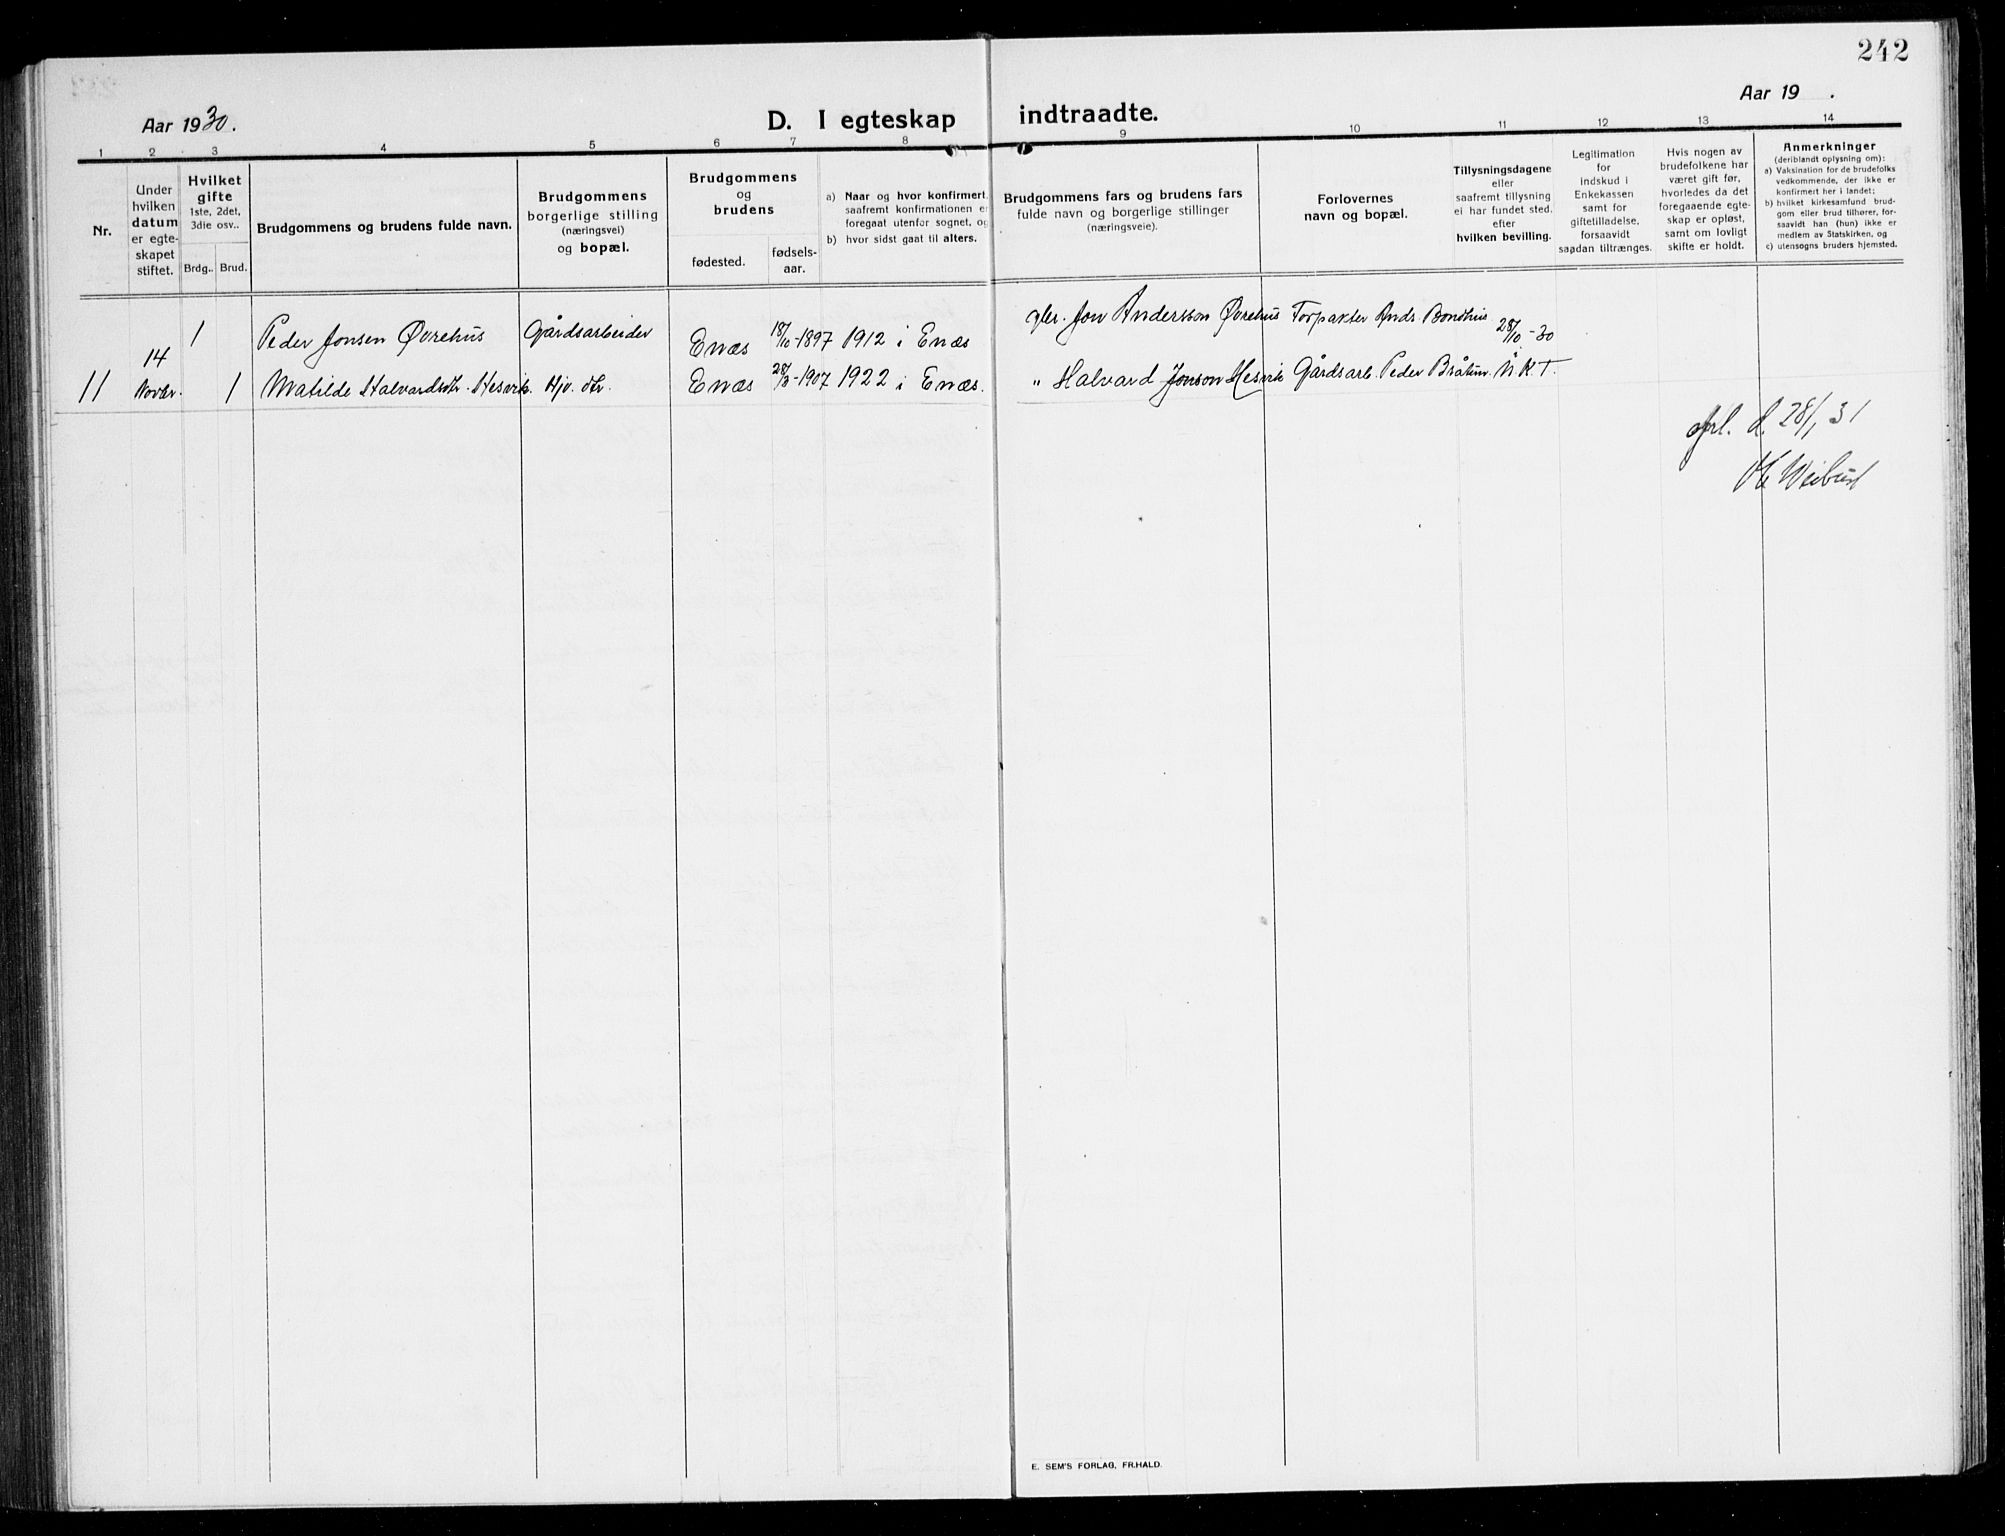 242
Aar 1930.
D. I egteskap indtraadte.
Aar 19 .
1 2 3 4 5 6 7 8 9 10 11 12 13 14
Nr.
Under
hvilken
datum
er egte-
skapet
stiftet.
Hvilket
gifte
1ste, 2det,
3die osv..
Brdg.. Brud.
Brudgommens og brudens fulde navn.
Brudgommens
borgerlige stilling
(næringsvei)
og bopæl.
Brudgommens
og
brudens
fødested.
fødsels-
aar.
a) Naar og hvor konfirmert,
saafremt konfirmationen er
foregaat utenfor sognet, og
b) hvor sidst gaat til alters.
Brudgommens fars og brudens fars
fulde navn og borgerlige stillinger
(næringsveie).
Forlovernes
navn og bopæl.
Tillysningsdagene
eller
saafremt tillysning
ei har fundet sted,
efter
hvilken bevilling.
Legitimation
for
indskud i
Enkekassen
samt for
giftetilladelse,
forsaavidt
saadan tiltrænges.
Hvis nogen av
brudefolkene har
været gift før,
hvorledes da det
foregaaende egte-
skap er opløst,
samt om lovligt
skifte er holdt.
Anmerkninger
(deriblandt oplysning om):
a) Vaksination for de brudefolks
vedkommende, der ikke er
konfirmert her i landet;
b) hvilket kirkesamfund brud-
gom eller brud tilhører, for-
saavidt han (hun) ikke er
medlem av Statskirken, og
c) utensogns bruders hjemsted.
1 Peder Jonsen Øvrehus Gårdsarbeider Enæs 18/10-1897 1912 i Enæs gbr. Jon Andersson Øvrehus Forpakter Ands. Bondhus 28/10-30
11 14 Novbr. 1 Matilde Halvardsdtr. Hesvik. Hjv. dtr. Enæs 28/3-1907 1922 i Enæs. " Halvard Jonson Hesvik Gårdsarb. Peder Bråtun. Ñ.K.T.
d. 28/1 31